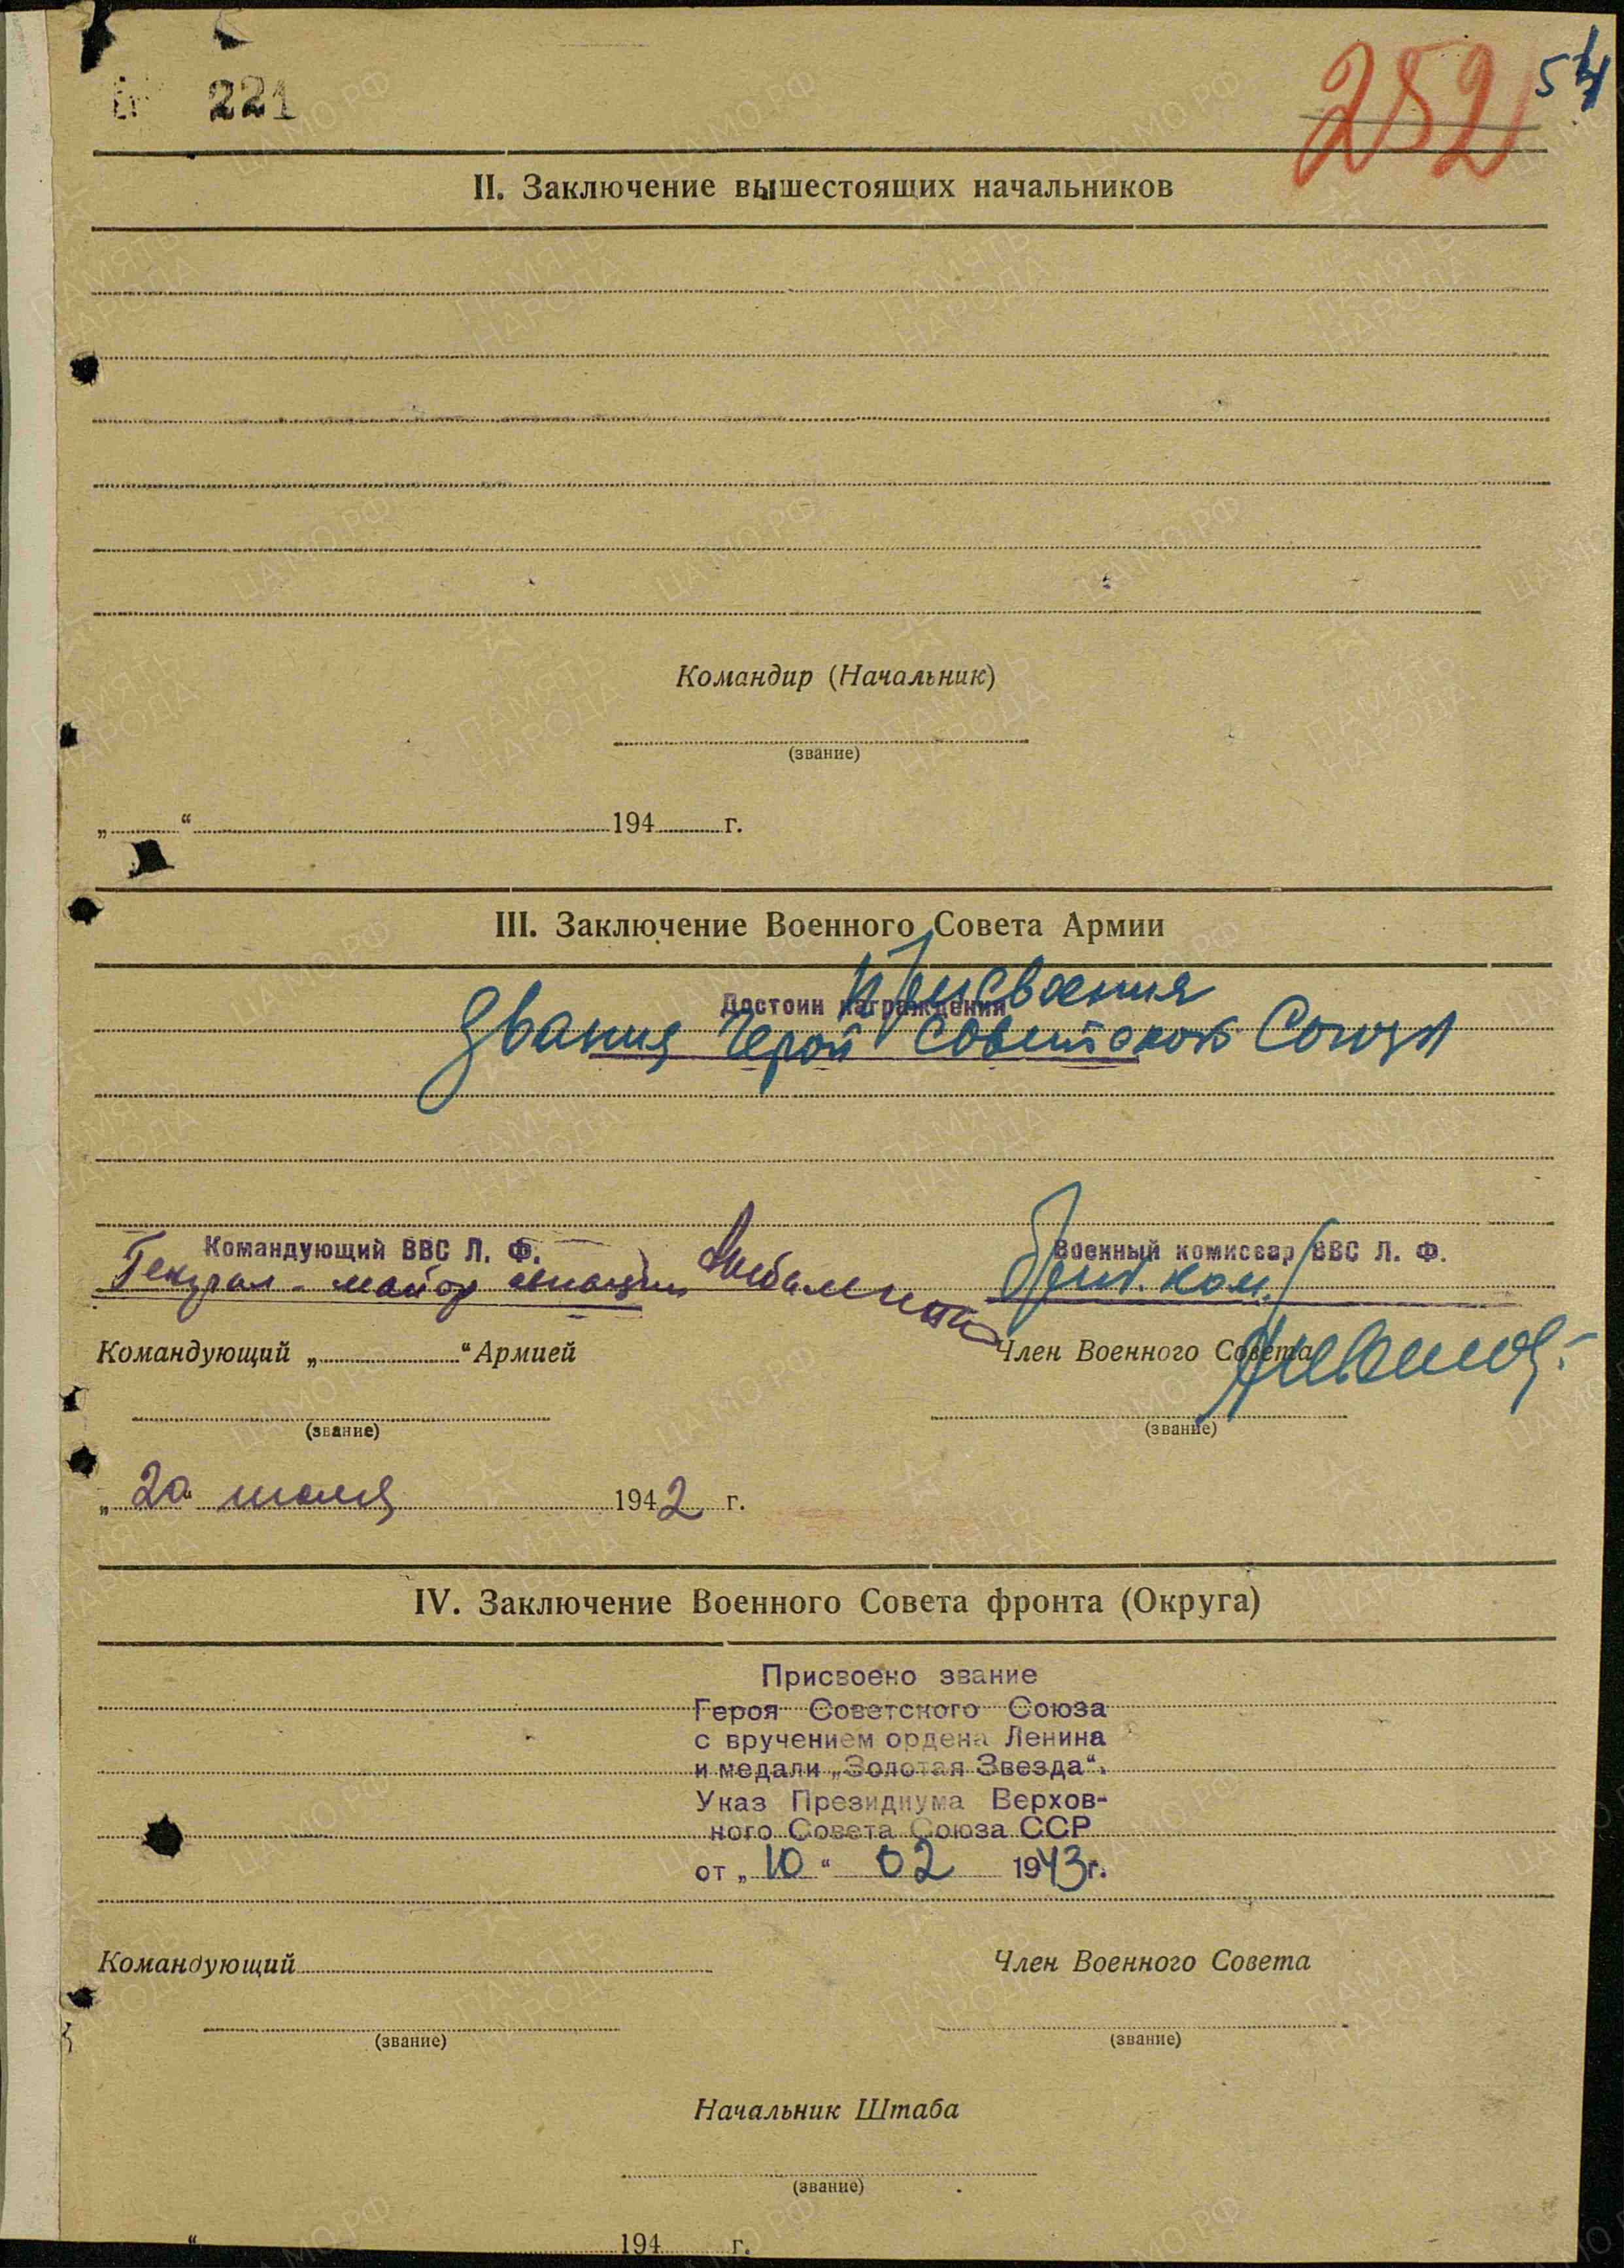 221
252
54
II. Заключение вышестоящих начальников
Командир (Начальник)
(звание)
„ “ 194 г.
III. Заключение Военного Совета Армии
Достоин награждения
Присвоения
звания Герой Советского Союза
Командующий ВВС Л. Ф.
Военный комиссар ВВС Л. Ф.
Генерал-майор авиации
Командующий „ “ Армией
Член Военного Совета
(звание)
(звание)
„20“ июля 1942 г.
IV. Заключение Военного Совета фронта (Округа)
Присвоено звание
Героя Советского Союза
с вручением ордена Ленина
и медали „Золотая Звезда“.
Указ Президиума Верхов-
ного Совета Союза ССР
от „10“ 02 1943г.
Командующий
Член Военного Совета
(звание)
(звание)
Начальник Штаба
(звание)
“ 194 г.
ПАМЯТЬ НАРОДА
ЦАМО.РФ